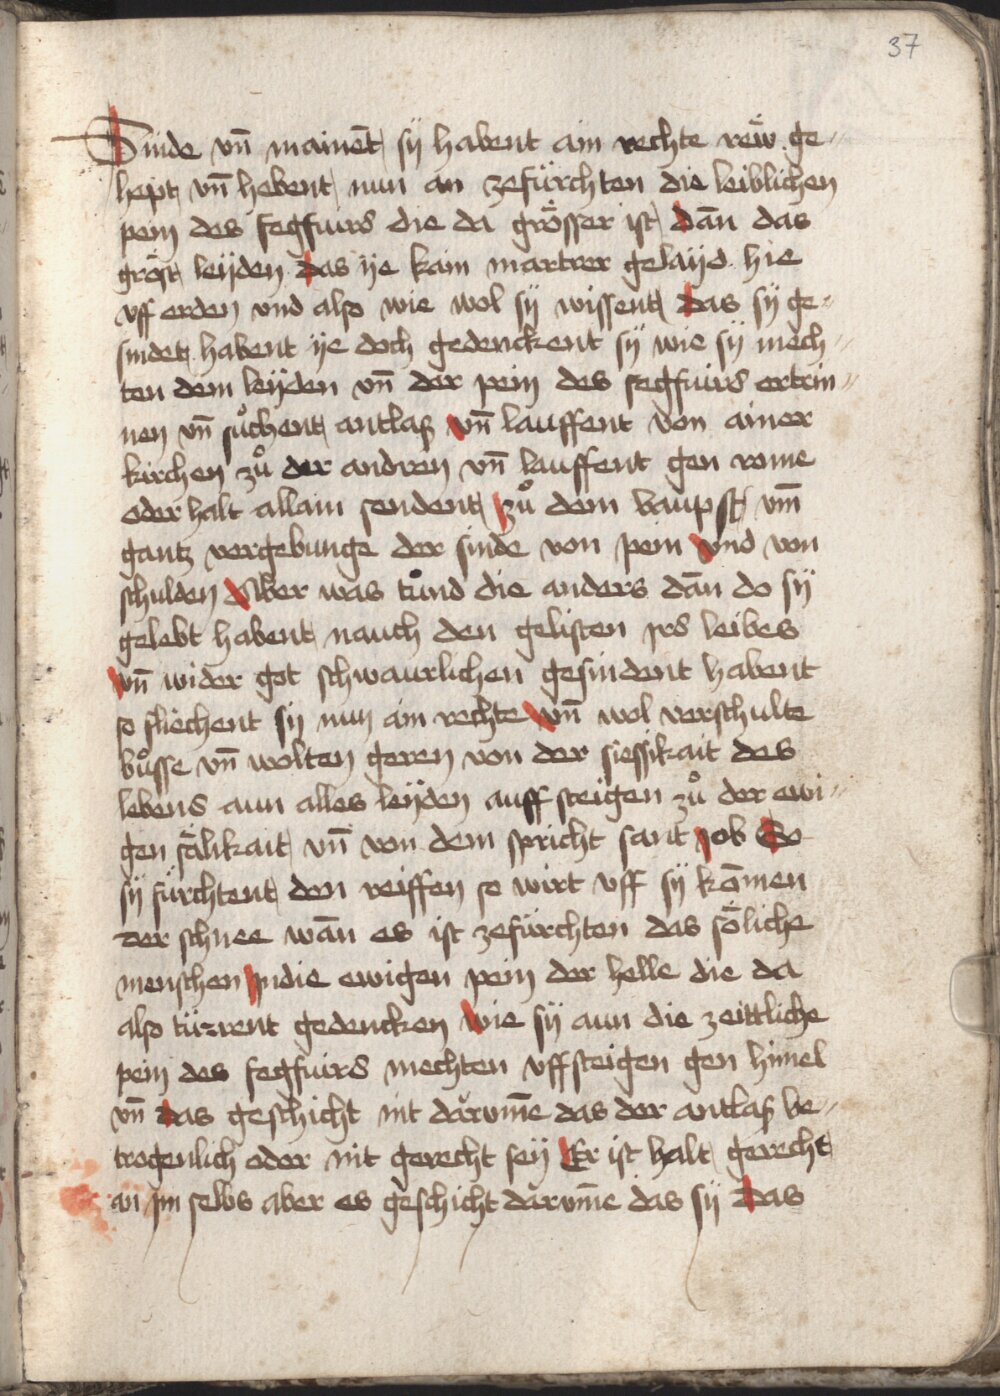 37
Sinde vn̄ mainēt sÿ habent ain rechte rew̋ ge〃
hept vn̄ hebent nun an zefürchten die leiblichen
pein des fegfuirs die da grösser ist dān das
gröst leÿden das ÿe kain martrer gelaÿd hie
vff erden vnd also wie wol sÿ wissent das sÿ ge〃
sindet habent ÿe doch gedenckent sÿ wie sÿ mech〃
ten dem leÿden vn̄ der pein des fegfuirs entrin〃
nen vn̄ sůchent antlaß vn̄ lauffent von ainer
kirchen zů der andren vn̄ lauffent gen rome
oder halt allain sendent zů dem baupst vm̄
gantz vergebunge der sinde von pein vnd von
schulden Aber was tůnd die anders dān do sÿ
gelebt habent nauch den gelisten irs leibes
vn̄ wider got schwaurlichen gesindent habent
so fliechent sÿ nun ain rechte vn̄ wol verschulte
bůsse vn̄ wolten geren von der siessikait des
lebens aun alles leÿden auff steigen zů der ewi〃
gen sälikait vn̄ von dem spricht sant Job So
sÿ fürchtent den reiffen so wirt vff sÿ kōmen
der schnee wān es ist zefürchten das söliche
menschen in die ewigen pein der helle die da
also türrent gedencken wie sÿ aun die zeittliche
pein des fegfuirs mechten vffsteigen gen himel
vn̄ das geschicht nit darvm̄e das der antlaß be〃
trogenlich oder nit gerecht seÿ Er ist halt gerecht
an im selbs aber es geschicht darvm̄e das sÿ das